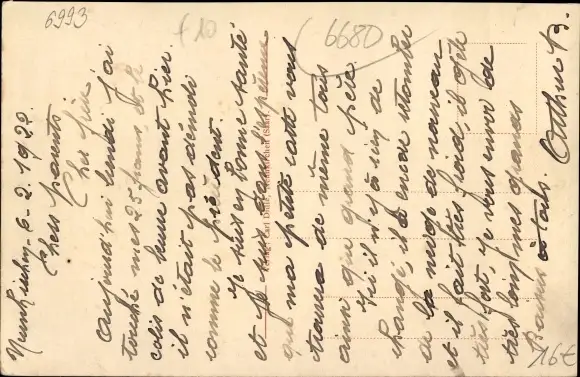 6993
£10
6680
6-2-1920.
Chers parents
Cher
aujourd'hui lundi j'ai
touché mes 25 francs, et le
colis de avant hier.
il n'était pas abimé
comme le précédent
Je suis en bonne santé
et je suis dans
que ma petite carte vous
trouve de même tous
ainsi que grand père.
Ici il n'y a rien de
changé, il a encor retombé
de la neige de nouveau
et il fait très froid, il gèle
très fort, je vous envoi de
très loin mes grands
baisers a tous. Arthur B.
Verlag: Carl
16€